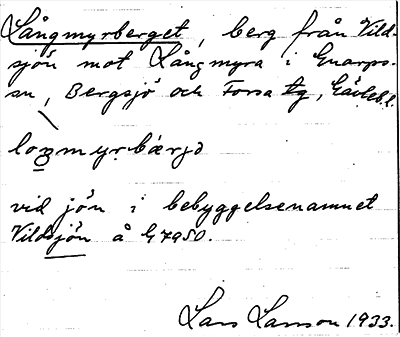 Långmyrberget, berg från Vild-
sjön mot Långmyra i Gnarps
sn, Bergsjö och Forsa tg, Gävleb.l.
loŋmyrbærjə
vid jön i bebyggelsenamnet
Vildsjön å G 7950.
Lars Larsson 1933.